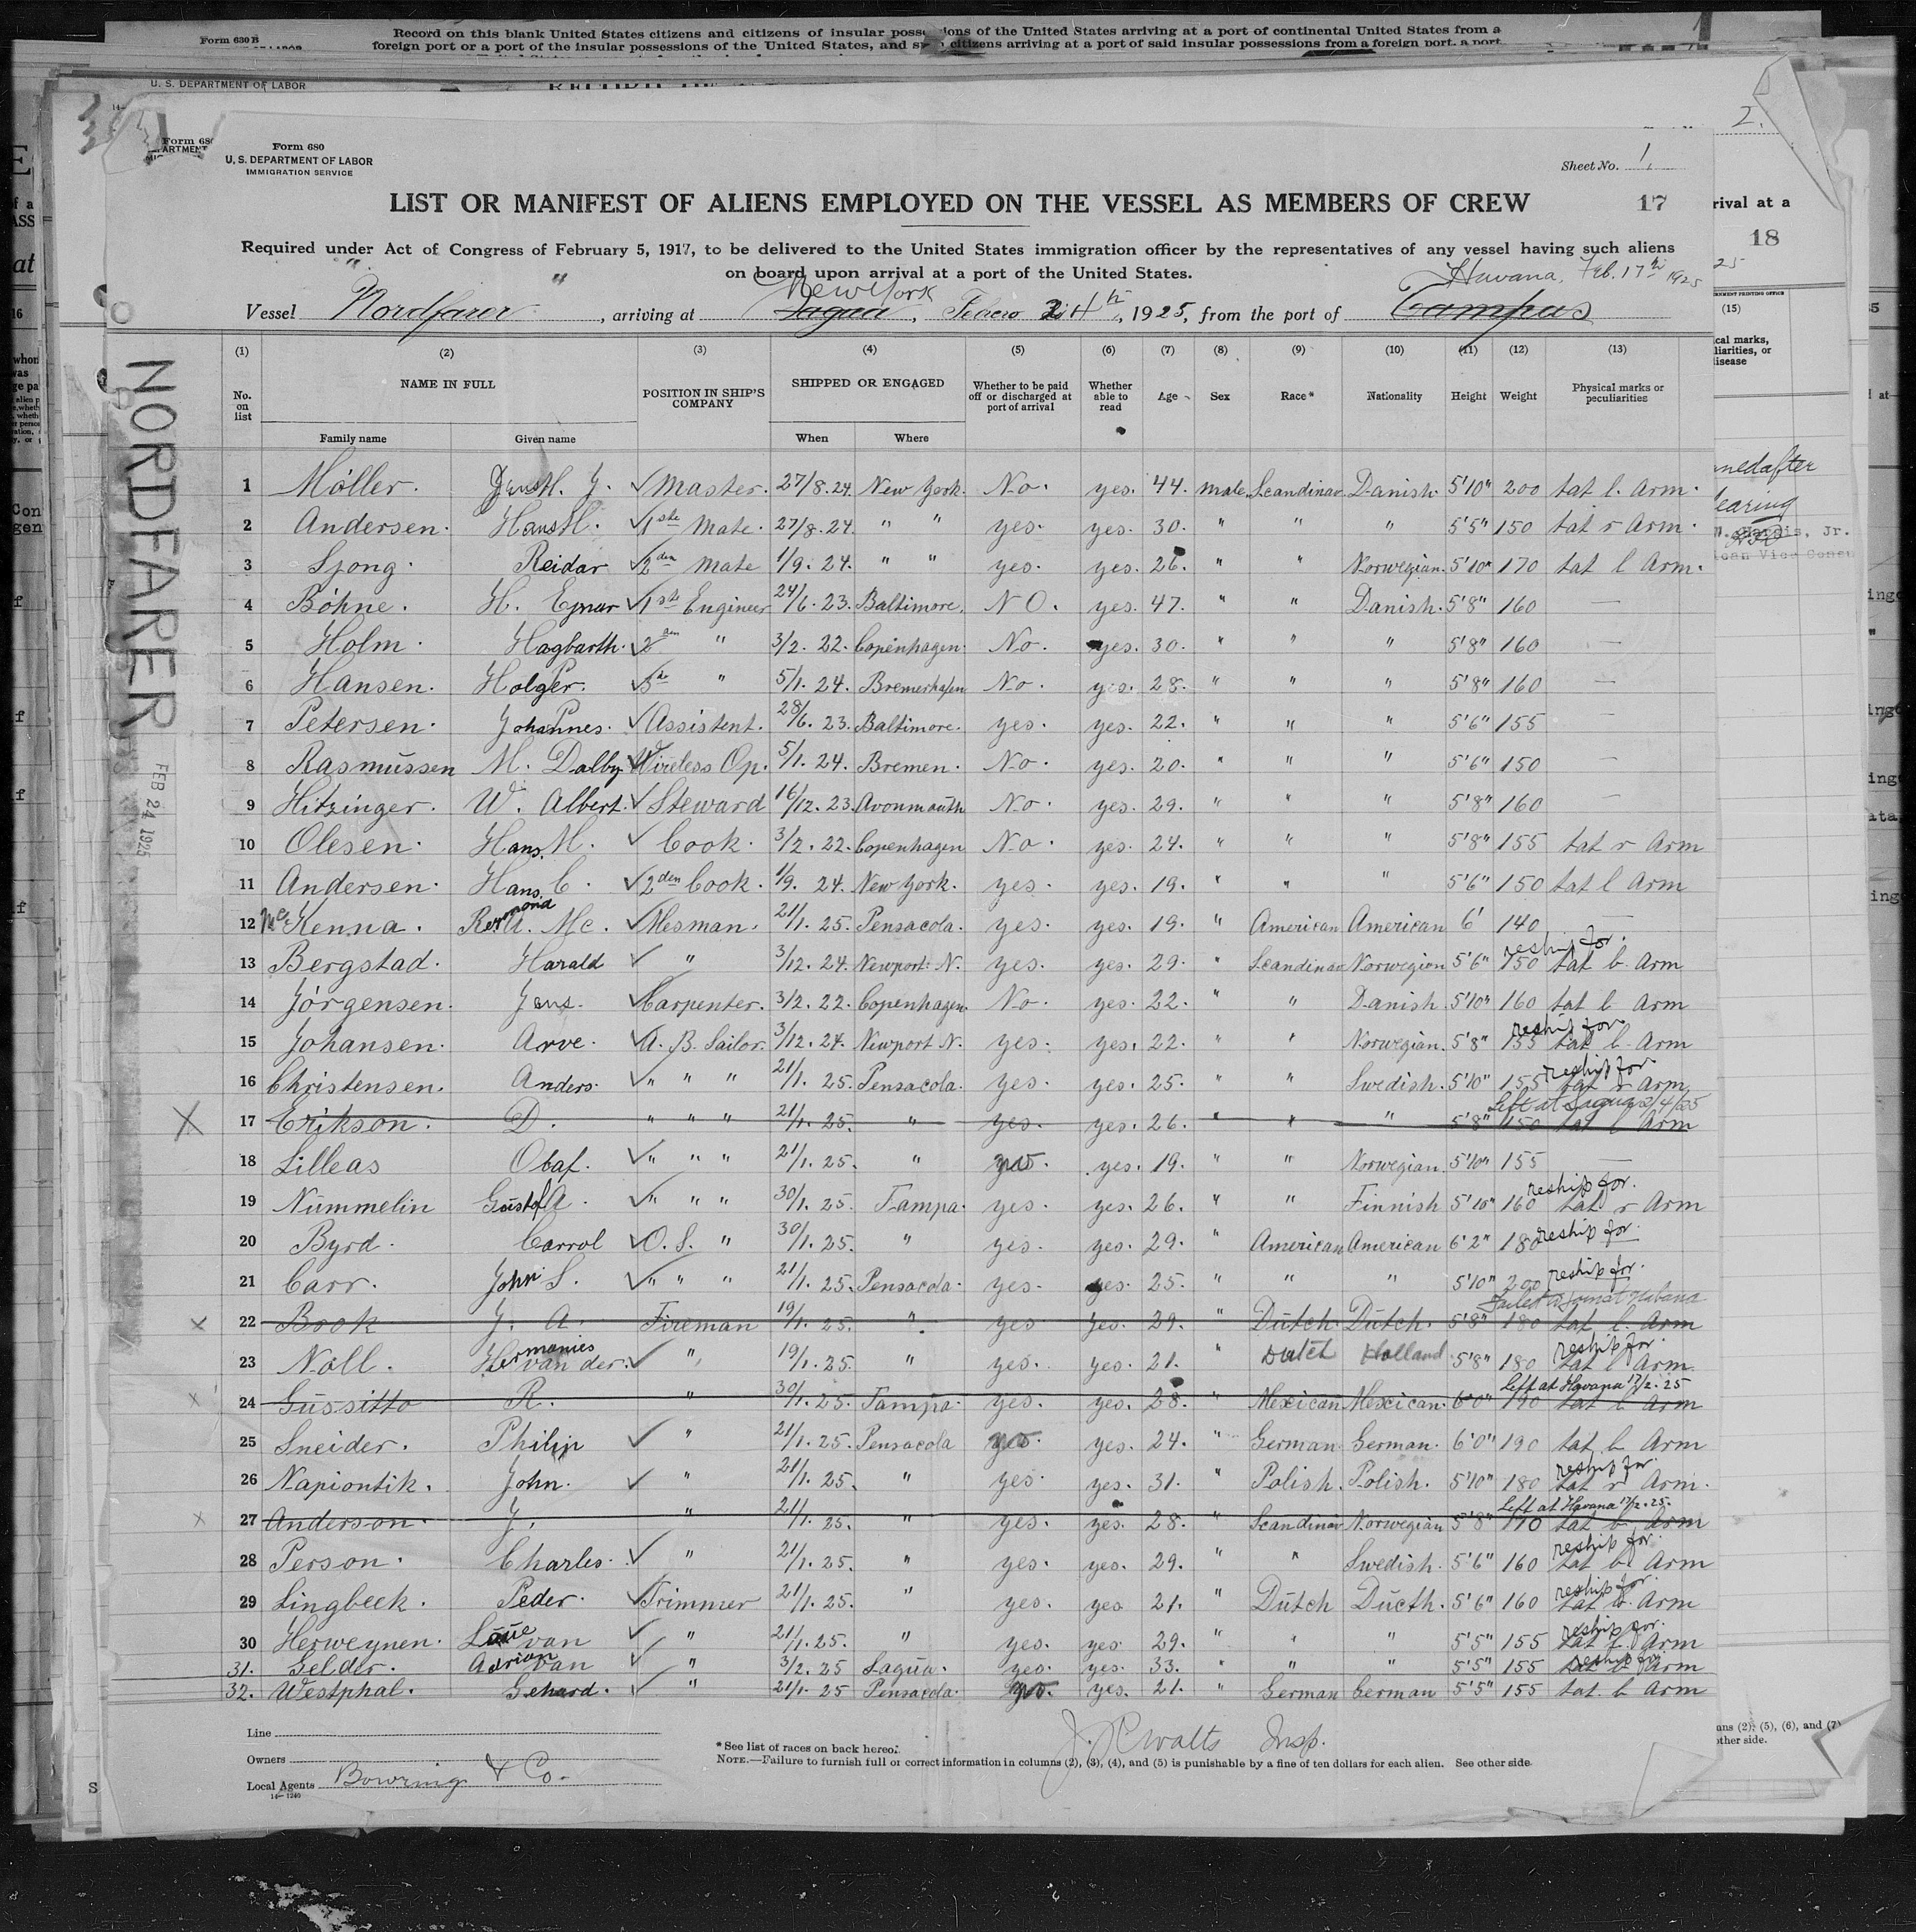 Record on this blank United States citizens and citizens of insular possessions of the United States arriving at a port of continental United States from a
foreign port or a port of the insular possessions of the United States, and citizens arriving at a port of said insular possessions from a foreign port, a port
Form 630 B
U. S. DEPARTMENT OF LABOR
2.
Form 680
U. S. DEPARTMENT OF LABOR
IMMIGRATION SERVICE
Sheet No. 1.
LIST OR MANIFEST OF ALIENS EMPLOYED ON THE VESSEL AS MEMBERS OF CREW
17
rival at a
18
Required under Act of Congress of February 5, 1917, to be delivered to the United States immigration officer by the representatives of any vessel having such aliens
on board upon arrival at a port of the United States.
Havana, Feb. 17th 1925
New York
Vessel Nordfarer, arriving at Sagua, Febero 24th, 1925, from the port of Tampas
(1) (2) (3) (4) (5) (6) (7) (8) (9) (10) (11) (12) (13)
No. on list NAME IN FULL POSITION IN SHIP'S COMPANY SHIPPED OR ENGAGED Whether to be paid off or discharged at port of arrival Whether able to read Age Sex Race* Nationality Height Weight Physical marks or peculiarities
Family name Given name When Where
NORDFARER
FEB 24 1925
1 Möller. Jens H. J. ✓ Master. 27/8.24. New York. No. yes. 44. male Scandinav Danish. 5'10" 200 tat l. Arm.
2 Andersen. Hans H. ✓ 1ste Mate. 27/8.24. " " yes. yes. 30. " " " 5'5" 150 tat r Arm.
3 Sjong. Reidar ✓ 2den Mate 1/9.24. " " yes. yes. 26. " " Norwegian. 5'10" 170 tat l Arm.
4 Böhne. H. Ejnar ✓ 1ste Engineer 24/6.23. Baltimore. NO. yes. 47. " " Danish. 5'8" 160 —
5 Holm. Hagbarth. ✓ 2den " 3/2.22. Copenhagen. No. yes. 30. " " " 5'8" 160 —
6 Hansen. Holger P. ✓ 3de " 5/1.24. Bremerhafen No. yes. 28. " " " 5'8" 160 —
7 Petersen. Johannes. ✓ Assistent. 28/6.23. Baltimore. yes. yes. 22. " " " 5'6" 155 —
8 Rasmüssen M. Dalby ✓ Wireless Op. 5/1.24. Bremen. No. yes. 20. " " " 5'6" 150 —
9 Hitzinger. W. Albert. ✓ Steward 16/12.23. Avonmaüth No. yes. 29. " " " 5'8" 160 —
10 Olesen. Hans. M. ✓ Cook. 3/2.22. Copenhagen No. yes. 24. " " " 5'8" 155 tat r Arm
11 Andersen. Hans C. ✓ 2den Cook. 1/9.24. New York. yes. yes. 19. " " " 5'6" 150 tat l Arm
12 Mc Kenna. Raymond A. Mc. ✓ Mesman. 21/1.25. Pensacola. yes. yes. 19. " American American 6' 140 —
13 Bergstad. Harald ✓ " 3/12.24. Newport N. yes. yes. 29. " Scandinav Norwegian 5'6" 150 reship for. tat b. Arm
14 Jörgensen. Jens. ✓ Carpenter. 3/2.22. Copenhagen. No. yes. 22. " " Danish. 5'10" 160 tat b Arm
15 Johansen. Arve. ✓ A. B. Sailor. 3/12.24. Newport N. yes. yes. 22. " " Norwegian. 5'8" 155 reship for tat b. Arm
16 Christensen. Anders. ✓ " " " 21/1.25. Pensacola. yes. yes. 25. " " Swedish. 5'10" 155 reship for tat r Arm
17 Erikson. D. " " " 21/1.25. " yes. yes. 26. " " " 5'8" 150 Left at Sagua 2/4/25 tat l Arm
18 Lilleas Olaf. ✓ " " " 21/1.25. " yes. yes. 19. " " Norwegian. 5'10" 155 —
19 Nümmelin Güstof A. ✓ " " " 30/1.25. Tampa. yes. yes. 26. " " Finnish 5'10" 160 reship for. tat r Arm
20 Byrd. Carrol ✓ O. S. " 30/1.25. " yes. yes. 29. " American American 6'2" 180 reship for.
21 Carr. John S. ✓ " " " 21/1.25. Pensacola. yes. yes. 25. " " " 5'10" 200 reship for.
22 Brook J. A. Fireman 19/1.25. " yes yes. 29. " Dütch. Dütch. 5'8" 180 Failed to join at Habana tat l. Arm
23 Noll. Hermanies van der. ✓ " 19/1.25. " yes. yes. 21. " Dutch Holland. 5'8" 180 reship for. tat l Arm
24 Güssitto R. " 30/1.25. Tampa. yes. yes. 28. " Mexican Mexican. 6'0" 190 Left at Havana 17/2.25 tat b Arm
25 Sneider. Philip ✓ " 21/1.25. Pensacola yes. yes. 24. " German. German. 6'0" 190 tat b Arm
26 Napiontik. John. ✓ " 21/1.25. " yes. yes. 31. " Polish. Polish. 5'10" 180 reship for. tat r Arm.
27 Anderson. J. " 21/1.25. " yes. yes. 28. " Scandinav Norwegian 5'8" 170 Left at Havana 17/2.25. tat b Arm
28 Person. Charles. ✓ " 21/1.25. " yes. yes. 29. " " Swedish. 5'6" 160 reship for. tat b. Arm
29 Lingbeek. Peder. ✓ Trimmer 21/1.25. " yes. yes 21. " Dütch Dücth. 5'6" 160 reship for. tat b. Arm
30 Herweynen. van ✓ " 21/1.25. " yes. yes. 29. " " " 5'5" 155 reship for. tat l. Arm
31. Gelder. Adrian van ✓ " 3/2.25 Sagüa. yes. yes. 33. " " " 5'5" 155 reship for tat b Arm
32. Westphal. Gehard. ✓ " 21/1.25 Pensacola. yes. yes. 21. " German German 5'5" 155 tat. b Arm
Line
Owners
Local Agents Bowring & Co.
14—1240
J. P. Watts Insp.
*See list of races on back hereof.
NOTE.—Failure to furnish full or correct information in columns (2), (3), (4), and (5) is punishable by a fine of ten dollars for each alien. See other side.